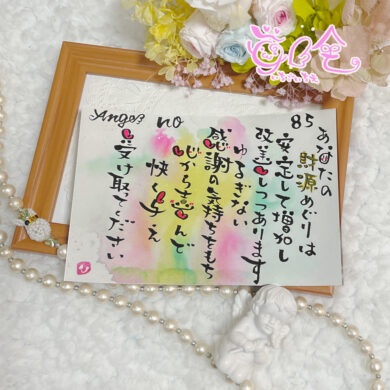 Angel no 85
あなたの財源めぐりは
安定して増加し
改善しつつあります
ゆるぎない
感謝の気持ちをもち
心から喜んで
快く与え
受け取てください